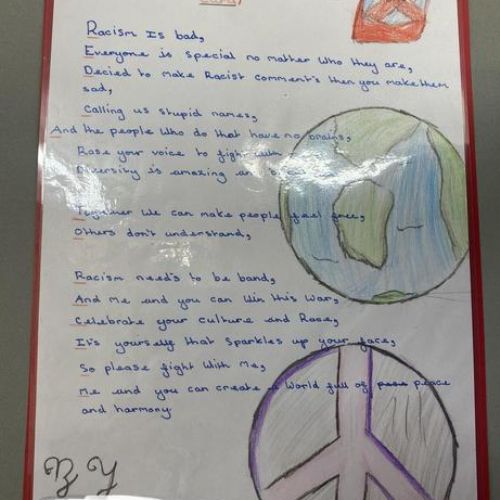 Card,
Racism Is bad,
Everyone is special no matter who they are,
Decided to make Racist comment's then you make them
sad,
Calling us stupid names,
And the people who do that have no brains,
Rase your voice to fight with
Diversity is amazing an
Together we can make people feel free,
Others don't understand,
Racism need's to be band,
And me and you can win this war,
Celebrate your culture and Race,
It's yourself that sparkles up your face,
So please fight with me,
Me and you can create a world full of peace
and harmony
B Y